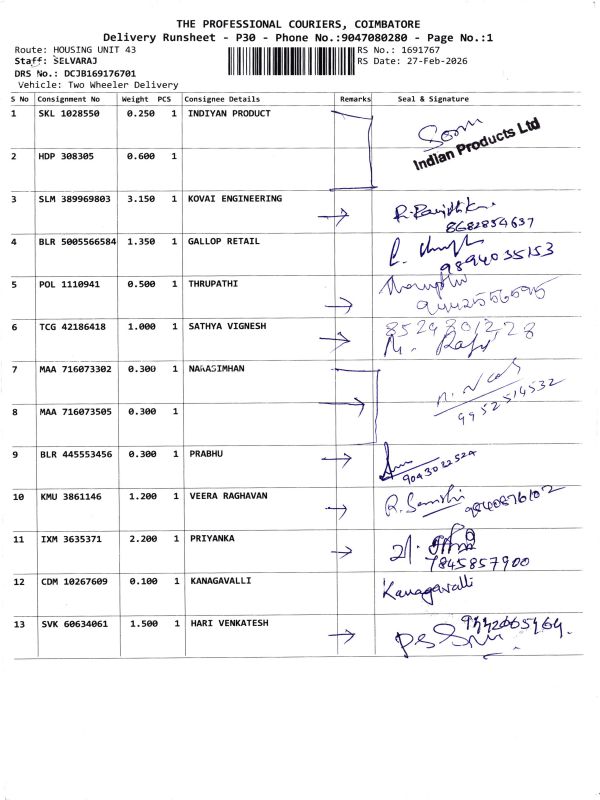 THE PROFESSIONAL COURIERS, COIMBATORE
Delivery Runsheet - P30 - Phone No.:9047080280 - Page No.:1
Route: HOUSING UNIT 43
RS No.: 1691767
Staff: SELVARAJ
RS Date: 27-Feb-2026
DRS No.: DCJB169176701
Vehicle: Two Wheeler Delivery
S No Consignment No Weight PCS Consignee Details Remarks Seal & Signature
1 SKL 1028550 0.250 1 INDIYAN PRODUCT
Indian Products Ltd
2 HDP 308305 0.600 1
3 SLM 389969803 3.150 1 KOVAI ENGINEERING
8682854637
4 BLR 5005566584 1.350 1 GALLOP RETAIL
9894035153
5 POL 1110941 0.500 1 THRUPATHI
6 TCG 42186418 1.000 1 SATHYA VIGNESH
8524801228
7 MAA 716073302 0.300 1 NARASIMHAN
9952514532
8 MAA 716073505 0.300 1
9 BLR 445553456 0.300 1 PRABHU
9043022524
10 KMU 3861146 1.200 1 VEERA RAGHAVAN
9840876102
11 IXM 3635371 2.200 1 PRIYANKA
7845857900
12 CDM 10267609 0.100 1 KANAGAVALLI
Kanagavalli
13 SVK 60634061 1.500 1 HARI VENKATESH